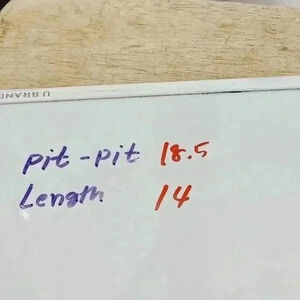 U BRAND
pit-pit 18.5
Length 14